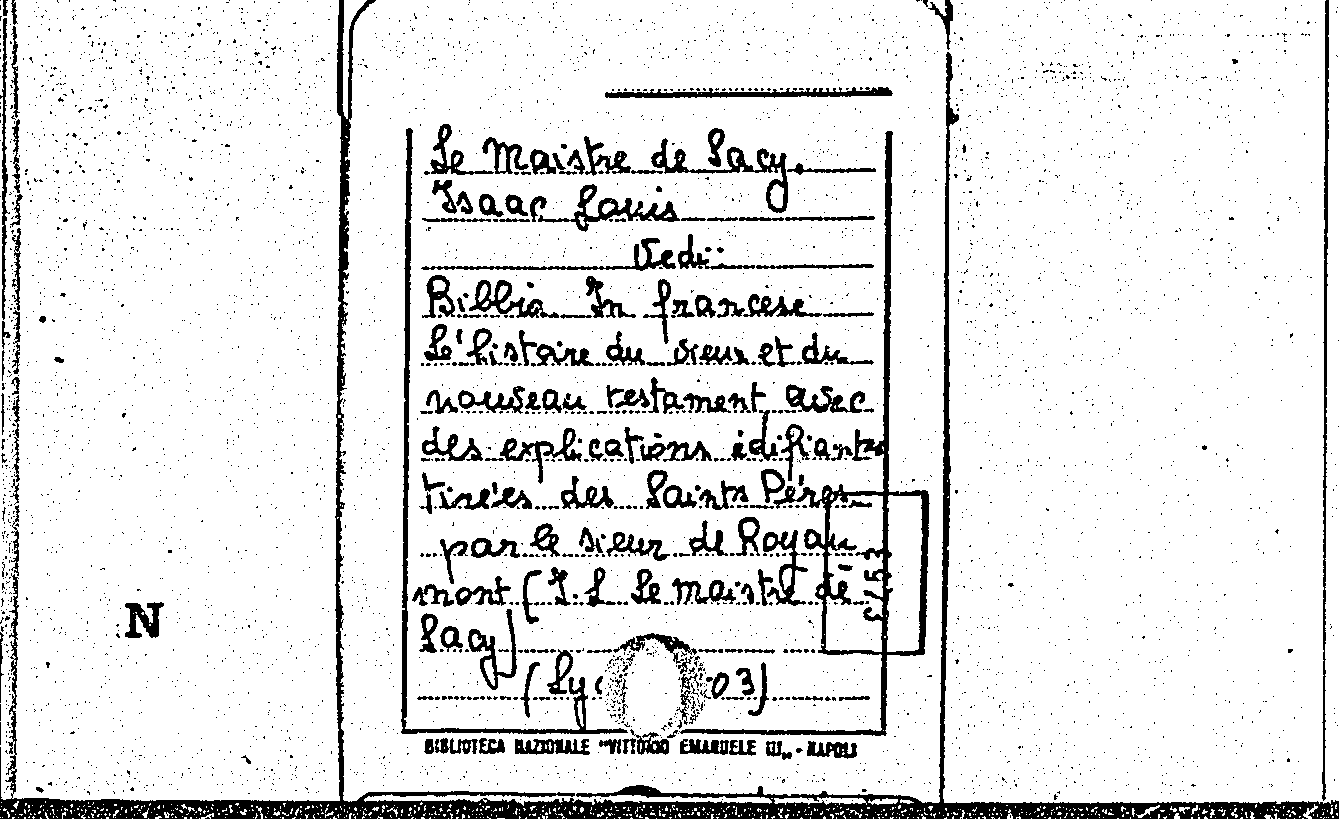 Le Maistre de Sacy.
Isaac Louis
Vedi:
Bibbia In francese
Le'histoire du vieux et du
nouveau testament avec
des explications édifiantes
tirées des Saints Pères
par le sieur de Royau
mont (I. L. Le maistre de
Sacy)
(Ly 03)
N
BIBLIOTECA NAZIONALE "VITTORIO EMANUELE III„ - NAPOLI